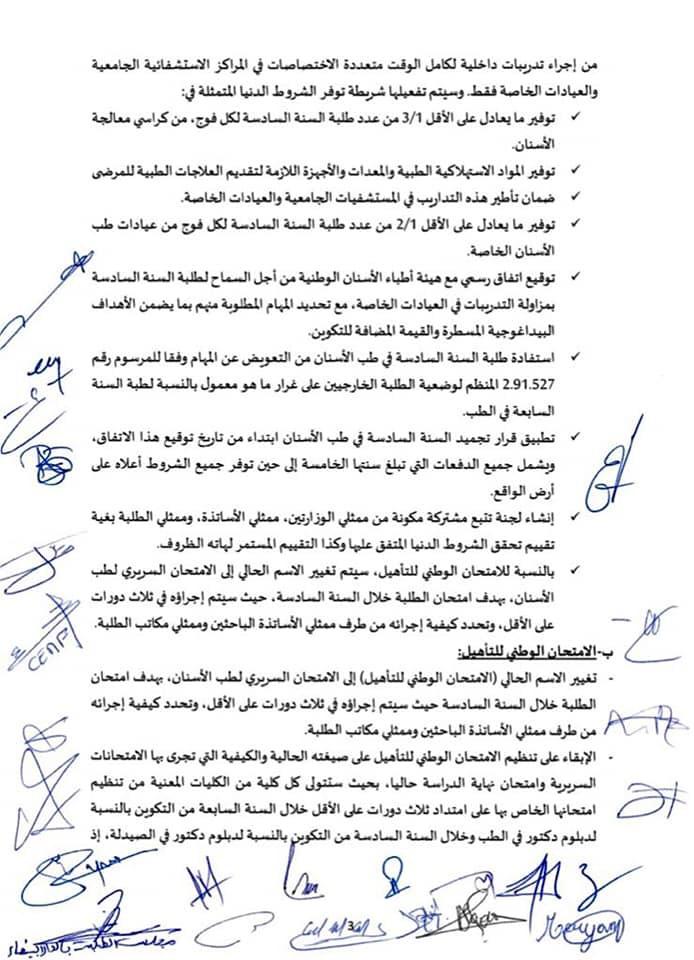 من إجراء تدريبات داخلية لكامل الوقت متعددة الاختصاصات في المراكز الاستشفائية الجامعية
والعيادات الخاصة فقط. وسيتم تفعيلها شريطة توفر الشروط الدنيا المتمثلة في:
✓ توفير ما يعادل على الأقل 3/1 من عدد طلبة السنة السادسة لكل فوج، من كراسي معالجة
الأسنان.
✓ توفير المواد الاستهلاكية الطبية والمعدات والأجهزة اللازمة لتقديم العلاجات الطبية للمرضى
✓ ضمان تأطير هذه التداريب في المستشفيات الجامعية والعيادات الخاصة.
✓ توفير ما يعادل على الأقل 2/1 من عدد طلبة السنة السادسة لكل فوج من عيادات طب
الأسنان الخاصة.
✓ توقيع اتفاق رسمي مع هيئة أطباء الأسنان الوطنية من أجل السماح لطلبة السنة السادسة
بمزاولة التدريبات في العيادات الخاصة، مع تحديد المهام المطلوبة منهم بما يضمن الأهداف
البيداغوجية المسطرة والقيمة المضافة للتكوين.
✓ استفادة طلبة السنة السادسة في طب الأسنان من التعويض عن المهام وفقا للمرسوم رقم
2.91.527 المنظم لوضعية الطلبة الخارجيين على غرار ما هو معمول بالنسبة لطبة السنة
السابعة في الطب.
✓ تطبيق قرار تجميد السنة السادسة في طب الأسنان ابتداء من تاريخ توقيع هذا الاتفاق،
ويشمل جميع الدفعات التي تبلغ سنتها الخامسة إلى حين توفر جميع الشروط أعلاه على
أرض الواقع.
✓ إنشاء لجنة تتبع مشتركة مكونة من ممثلي الوزارتين، ممثلي الأساتذة، وممثلي الطلبة بغية
تقييم تحقق الشروط الدنيا المتفق عليها وكذا التقييم المستمر لهاته الظروف.
✓ بالنسبة للامتحان الوطني للتأهيل، سيتم تغيير الاسم الحالي إلى الامتحان السريري لطب
الأسنان، بهدف امتحان الطلبة خلال السنة السادسة، حيث سيتم إجراؤه في ثلاث دورات
على الأقل، وتحدد كيفية إجرائه من طرف ممثلي الأساتذة الباحثين وممثلي مكاتب الطلبة.
ب-الامتحان الوطني للتأهيل:
- تغيير الاسم الحالي (الامتحان الوطني للتأهيل) إلى الامتحان السريري لطب الأسنان، بهدف امتحان
الطلبة خلال السنة السادسة حيث سيتم إجراؤه في ثلاث دورات على الأقل، وتحدد كيفية إجرائه
من طرف ممثلي الأساتذة الباحثين وممثلي مكاتب الطلبة.
- الإبقاء على تنظيم الامتحان الوطني للتأهيل على صيغته الحالية والكيفية التي تجرى بها الامتحانات
السريرية وامتحان نهاية الدراسة حاليا، بحيث ستتولى كل كلية من الكليات المعنية من تنظيم
امتحانها الخاص بها على امتداد ثلاث دورات على الأقل خلال السنة السابعة من التكوين بالنسبة
لدبلوم دكتور في الطب وخلال السنة السادسة من التكوين بالنسبة لدبلوم دكتور في الصيدلة، إذ
3